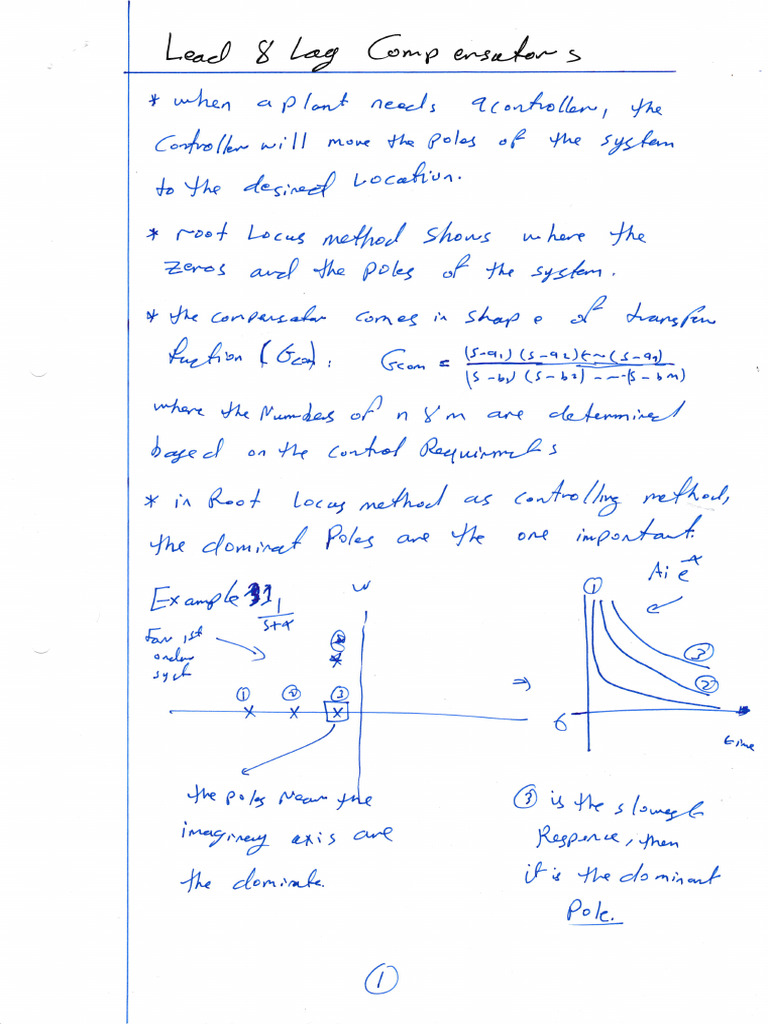 Lead & Lag Compensators
* when a plant needs a controller, the
Controller will move the poles of the system
to the desired Location.
* root Locus method shows where the
zeros and the poles of the system.
* the compensator comes in shape of transfer
fuction (Gcom): Gcom = (s-a1)(s-a2)----(s-an) / (s-b1)(s-b2)----(s-bm)
where the Numbers of n & m are determined
based on the control Requirments
* in Root Locus method as controlling method,
the dominat Poles are the one important.
Example 1/(s+α)
For 1st
order
syst
w
① ② ③
⇒
①
Ai e^-α
③
②
6
time
the poles Near the
imaginery axis are
the dominate.
③ is the slowest
Response, then
it is the dominant
Pole.
①